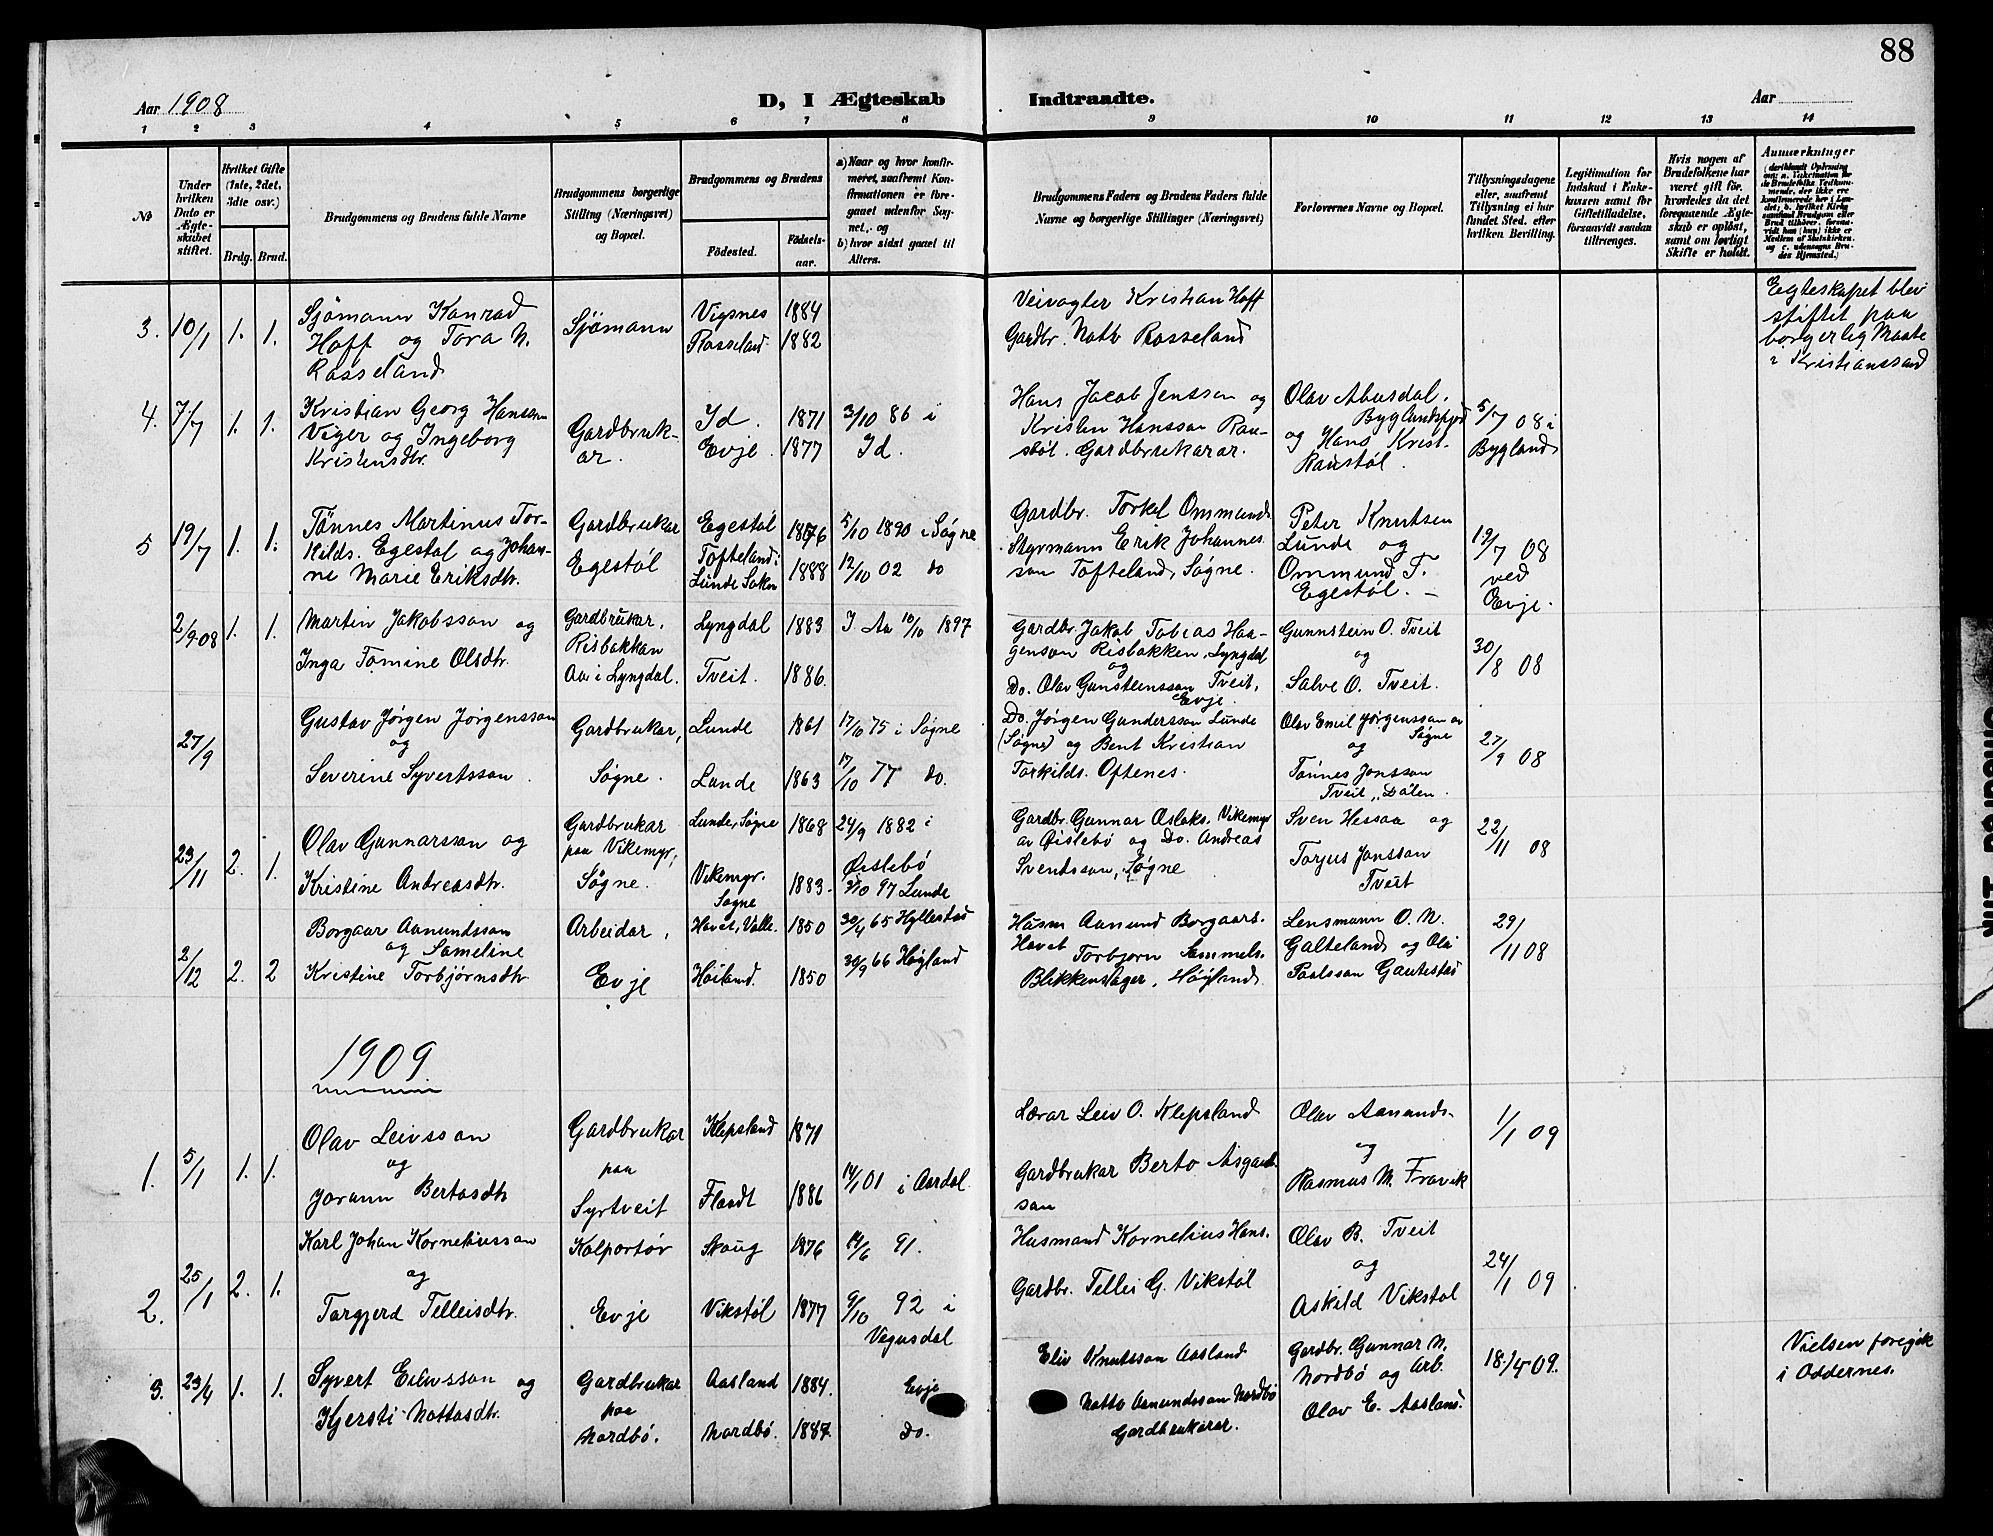 88
Aar 1908
D, I Ægteskab
Indtraadte.
Aar
1 2 3 4 5 6 7 8 9 10 11 12 13 14
No
Under hvilken Dato er Ægteskabet stiftet.
Hvilket Gifte (1ste, 2det, 3die osv.)
Brdg. Brud.
Brudgommens og Brudens fulde Navne
Brudgommens borgerlige Stilling (Næringsvei) og Bopæl.
Brudgommens og Brudens
Fødested.
Fødselsaar.
a) Naar og hvor konfirmeret, saafremt Konfirmationen er foregaaet udenfor Sognet, og
b) hvor sidst gaaet til Alters.
Brudgommens Faders og Brudens Faders fulde Navne og borgerlige Stillinger (Næringsvei)
Forlovernes Navne og Bopæl.
Tillysningsdagene eller, saafremt Tillysning ei har fundet Sted, efter hvilken Bevilling.
Legitimation for Indskud i Enkekassen samt for Giftetilladelse, forsaavidt saadan tiltrænges.
Hvis nogen af Brudefolkene har været gift før, hvorledes da det foregaaende Ægteskab er opløst, samt om lovligt Skifte er holdt.
Anmerkninger
3. 10/1 1. 1. Sjømann Konrad Hoff og Tora N. Rosseland
Sjømann
Vigsnes 1884
Rosseland 1882
Veivogter Kristian Hoff
Gardbr. Natv Rosseland
Egteskapet blev stiftet paa borgerlig Maate i Kristianssand
4. 7/7 1. 1. Kristian Georg Hansen Viger og Ingeborg Kristensdtr.
Gardbrukar.
Id. 1871 3/10 86 i Id.
Evje. 1877
Hans Jacob Jenssen og Kristen Hansson Raustøl. Gardbrukarar.
Olav Abusdal, Byglandsfjord og Hans Krist. Raustøl.
5/7 08 i Bygland
5 19/7 1. 1. Tønnes Martinus Torkilds. Egestøl og Johanne Marie Eriksdtr.
Gardbrukar Egestøl
Egestøl 1876 5/10 1890 i Søgne
Tofteland, Lunde Sokn 1888 12/10 02 do
Gardbr. Torkel Ommunds. Styrmann Erik Johannesson Tofteland, Søgne.
Peter Knutsen Lunde og Ommund T. Egestøl. –
19/7 08 ved Evje.
2/9 08 1. 1. Martin Jakobsson og Inga Tomine Olsdtr.
Gardbrukar, Risbakkan Aa i Lyngdal.
Lyngdal 1883 I Aa 10/10 1897
Tveit. 1886.
Gardbr. Jakob Tobias Haagenson Risbakken, Lyngdal og Do. Olav Gunsteinsson Tveit, Evje.
Gunnstein O. Tveit og Salve O. Tveit.
30/8 08
27/9 Gustav Jørgen Jørgensson og Severine Syvertsson.
Gardbrukar, Søgne.
Lunde 1861 17/10 75 i Søgne
Lunde 1863 17/10 77 do.
Do. Jørgen Gundersson Lunde (Søgne) og Bent Kristian Torkilds. Oftenes.
Olav Emil Jørgensson av Søgne og Tønnes Jonsson Tveit, Dålen.
27/9 08
23/11 2. 1. Olav Gunnarsson og Kristine Andreasdtr.
Gardbrukar paa Vikemyr, Søgne.
Lunde, Søgne 1868 24/9 1882 i Øislebø
Vikemyr. Søgne 1883. 3/10 97 Lunde
Gardbr. Gunnar Aslaks. Vikemyr av Øislebø og Do. Andreas Svendsson, Søgne
Sven Hessaa og Torjus Jonsson Tveit
22/11 08
2/12 2. 2 Borgaar Aanundsson og Sameline Kristine Torbjørnsdtr
Arbeidar, Evje
Hovet, Valle. 1850 30/4 65 Hyllestad
Høiland. 1850 30/9 66 Høyland
Husm Aanund Borgaars. Hovet Torbjørn Sammels. Blikkenslager, Høyland.
Lensmann O. N. Galteland og Ola Paalsson Gautestad
29/11 08
1909
1. 5/1 1. 1. Olav Leivsson og Jorunn Bertosdtr
Gardbrukar paa Syrtveit
Klepsland 1871
Flaadt 1886 14/1 01 i Aardal.
Lærar Leiv O. Klepsland
Gardbrukar Berto Asgautson
Olav Aanunds. og Rasmus M. Frøvik
1/1 09
2. 25/1 2. 1. Karl Johan Korneliusson og Torgjerd Telleisdtr.
Kolportør Evje
Skaug 1876 14/6 91.
Vikstøl 1877 9/10 92 i Vegusdal
Husmand Kornelius Hans.
Gardbr. Tellei G. Vikstøl
Olav B. Tveit og Askild Vikstøl
24/1 09
3. 23/4 1. 1. Syvert Eilevsson og Kjersti Nottosdtr.
Gardbrukar paa Nordbø.
Aasland 1884. Evje
Nordbø. 1887. Do.
Eliv Knutsson Aasland
Notto Asmundsson Nordbø Gardbrukarar.
Gardbr. Gunnar N. Nordbø og Arb. Olav E. Aasland.
18/4 09.
Vielsen foregik i Oddernes.